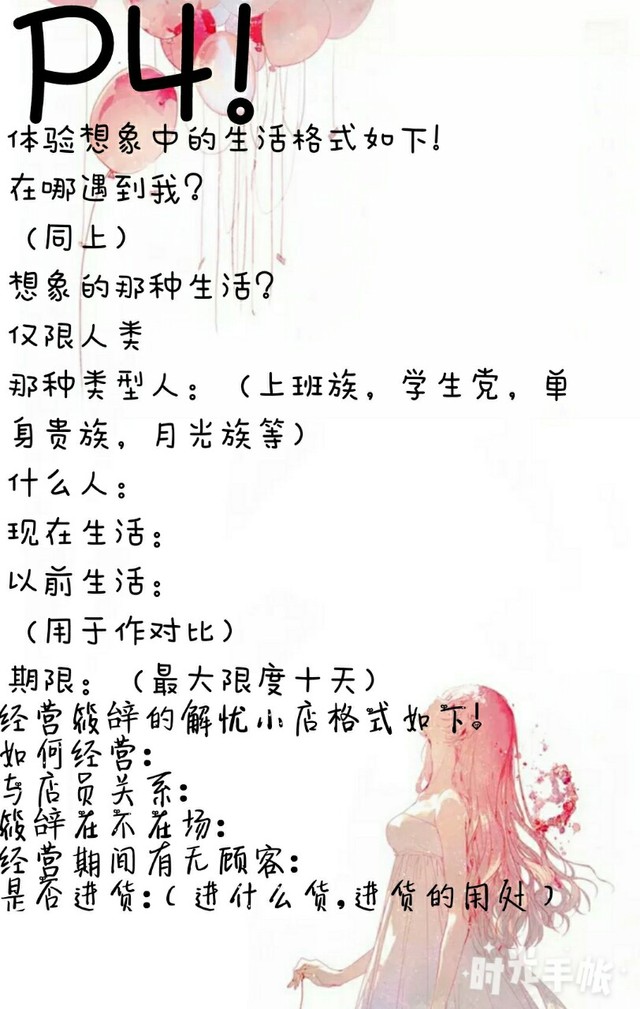 P4!
体验想象中的生活格式如下!
在哪遇到我?
（同上）
想象的那种生活?
仅限人类
那种类型人：（上班族，学生党，单
身贵族，月光族等）
什么人：
现在生活：
以前生活：
（用于作对比）
期限：（最大限度十天）
经营筱辞的解忧小店格式如下!
如何经营：
与店员关系：
筱辞在不在场：
经营期间有无顾客：
是否进货：（进什么货,进货的用处）
时光手帐